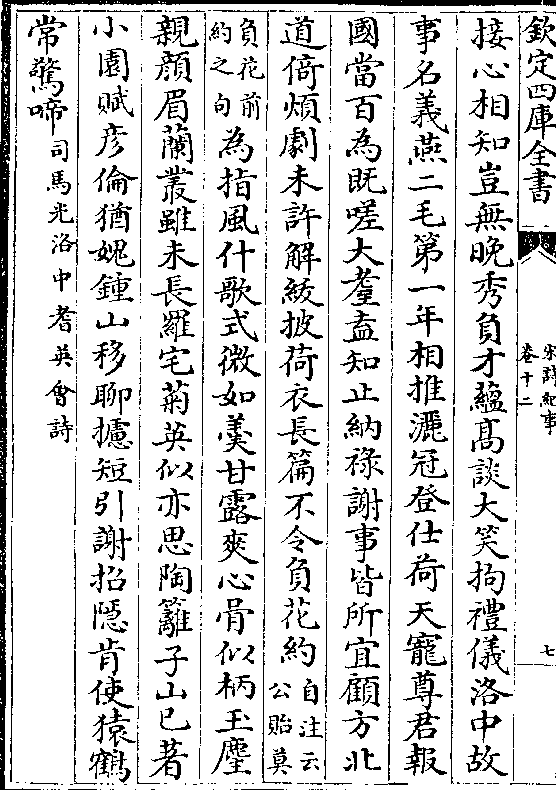 欽定四庫全書
宋詩紀事
卷十二
七
接心相知豈無晚秀負才蘊髙談大笑拘禮儀洛中故
事名義燕二毛第一年相推灑冠登仕荷天寵尊君報
國當百為既嗟大耋盍知止納祿謝事皆所宜顧方北
道倚煩劇未許解紱披荷衣長篇不令負花約自注云公貽莫
負花前約之句為指風什歌式微如羮甘露爽心骨似柄玉麈
親顔眉蘭叢雖未長羅宅菊英似亦思陶籬子山已著
小園賦彦倫猶媿鍾山移聊攄短引謝招隱肯使猿鶴
常驚啼司馬光洛中耆英㑹詩